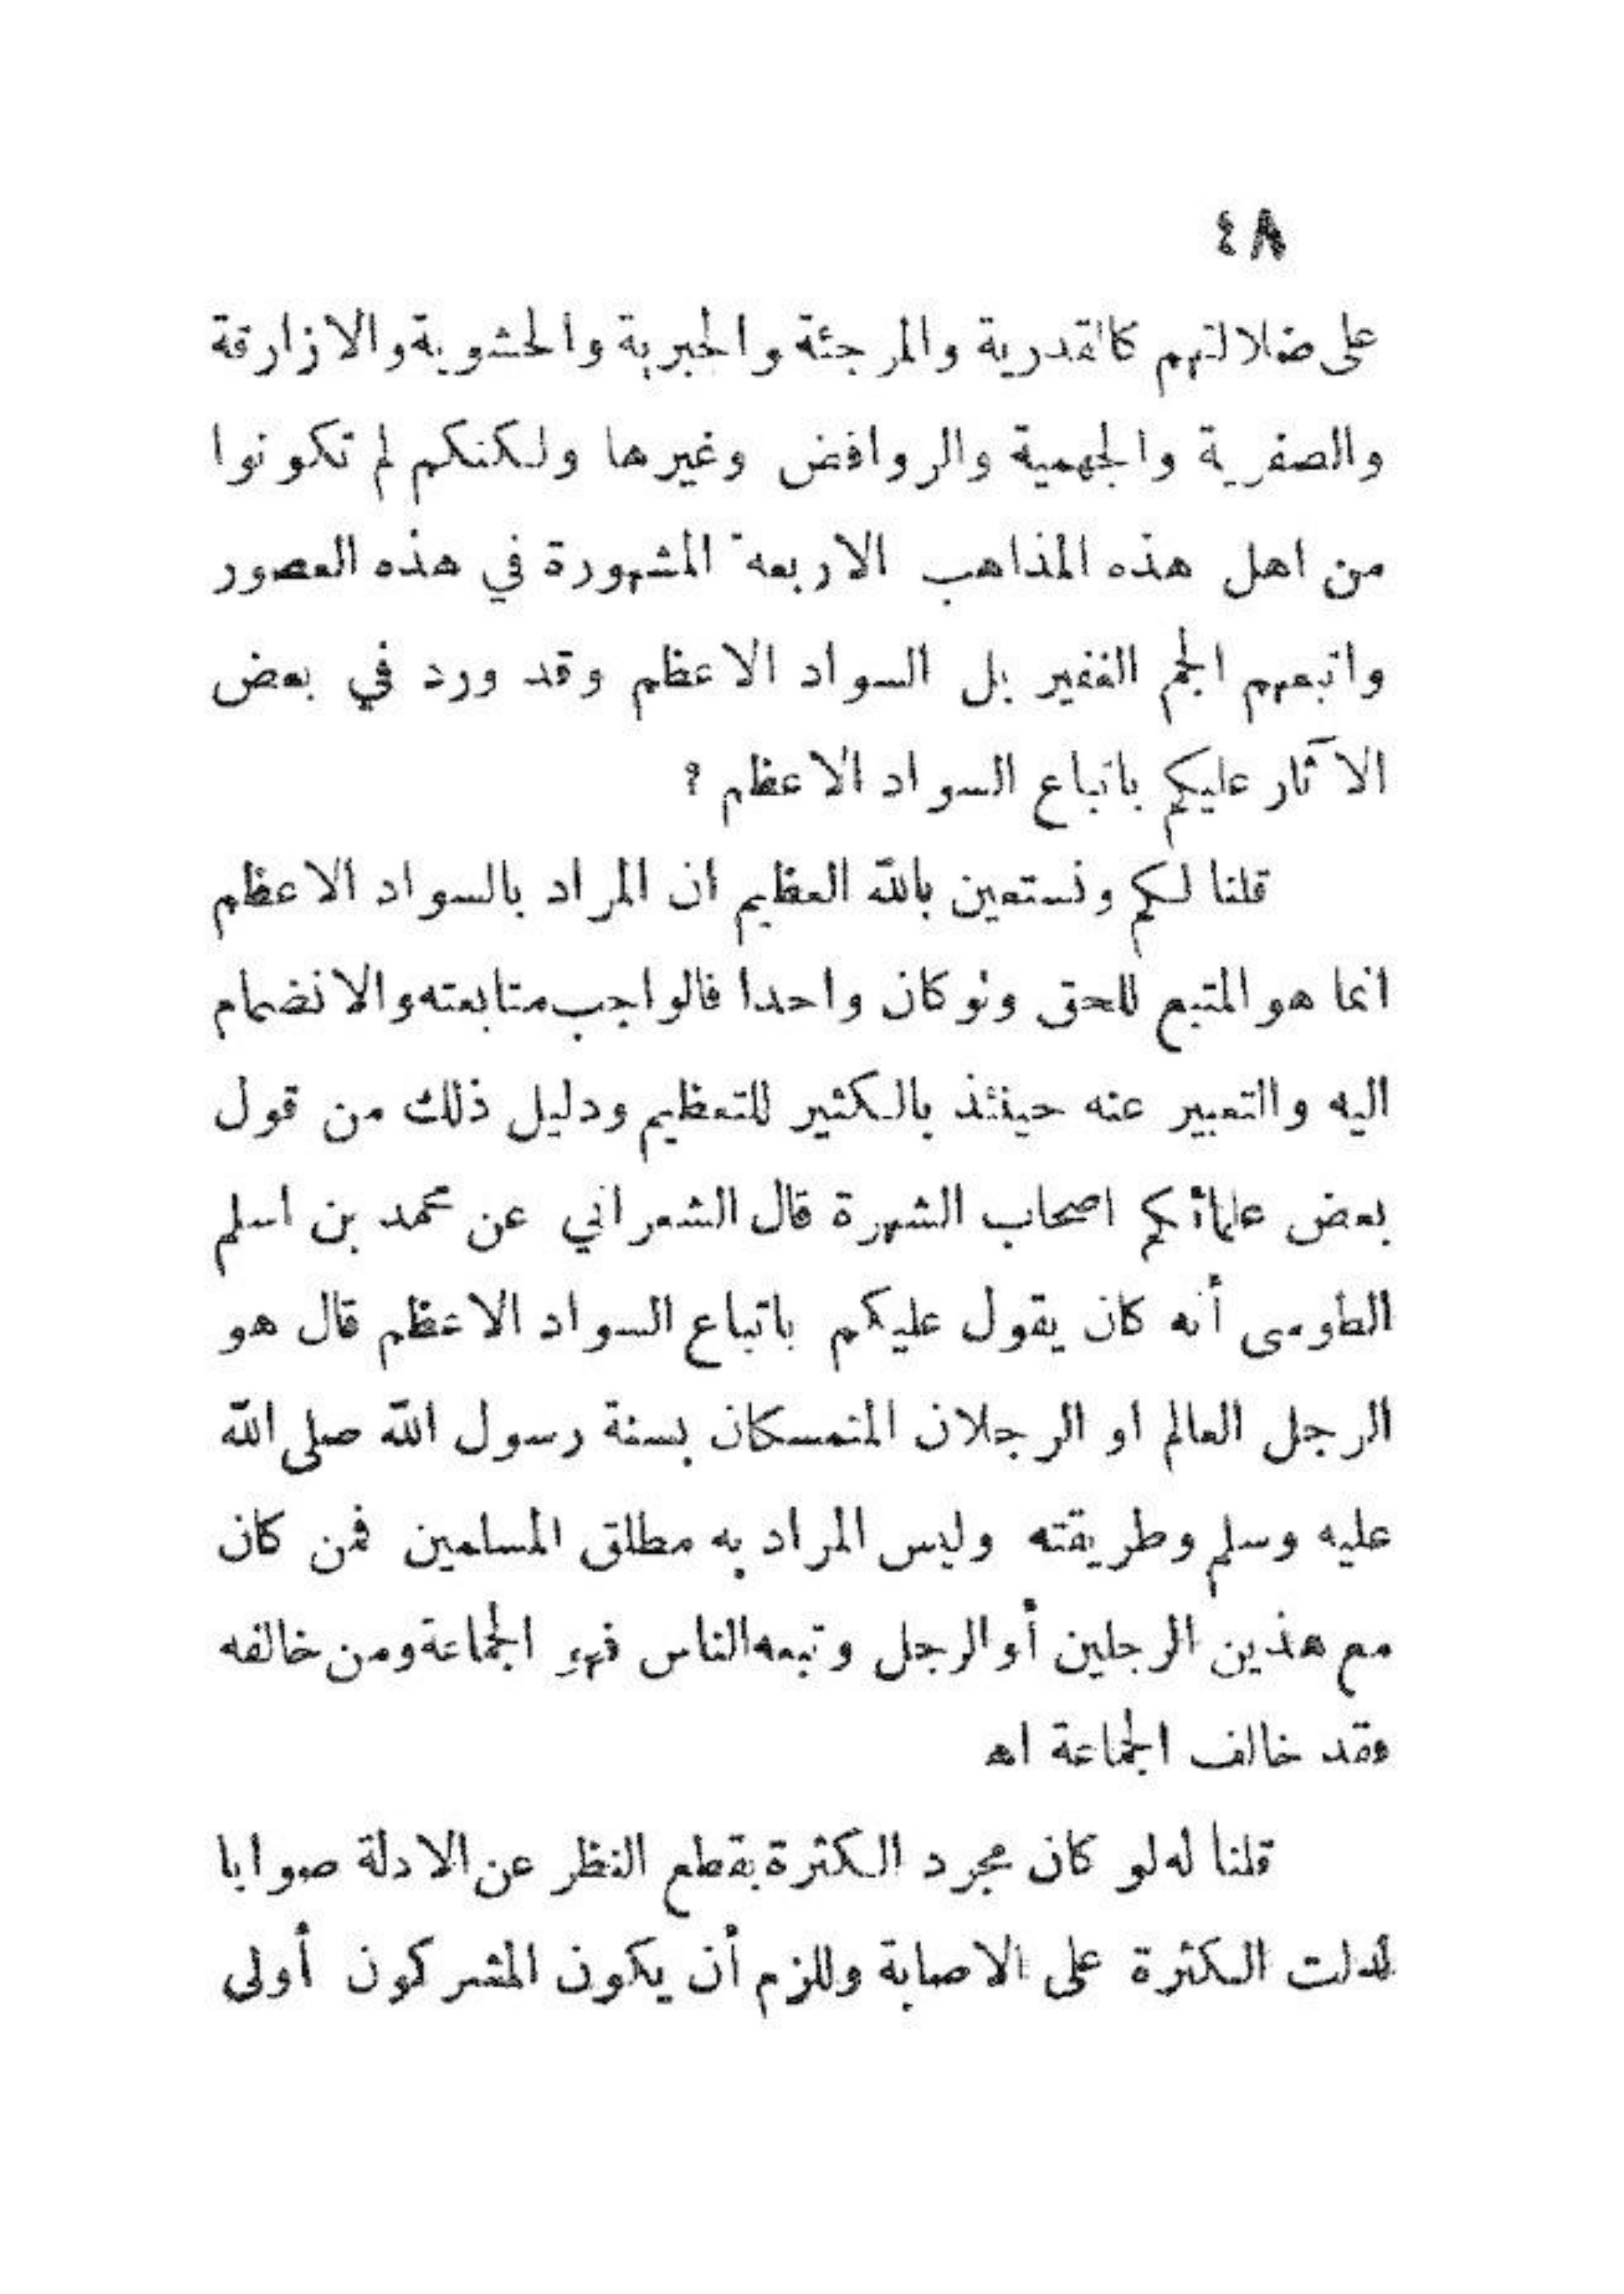 ٤٨
على ضلالتهم كالقدرية والمرجئة والجبرية والحشوية والازارقة
والصفرية والجهمية والروافض وغيرها ولكنكم لم تكونوا
من اهل هذه المذاهب الاربعة المشهورة في هذه العصور
واتبعهم الجم الغفير بل السواد الاعظم وقد ورد في بعض
الآثار عليكم باتباع السواد الاعظم ؟
قلنا لكم ونستعين بالله العظيم ان المراد بالسواد الاعظم
انما هو المتبع للحق ولو كان واحدا فالواجب متابعته والانضمام
اليه والتعبير عنه حينئذ بالكثير للتعظيم ودليل ذلك من قول
بعض علمائكم اصحاب الشهرة قال الشعراني عن محمد بن اسلم
الطوسى أنه كان يقول عليكم باتباع السواد الاعظم قال هو
الرجل العالم او الرجلان المتمسكان بسنة رسول الله صلى الله
عليه وسلم وطريقته وليس المراد به مطلق المسلمين فمن كان
مع هذين الرجلين أو الرجل وتبعه الناس فهو الجماعة ومن خالفه
فقد خالف الجماعة اه
قلنا له لو كان مجرد الكثرة بقطع النظر عن الادلة صوابا
لدلت الكثرة على الاصابة وللزم أن يكون المشركون أولى